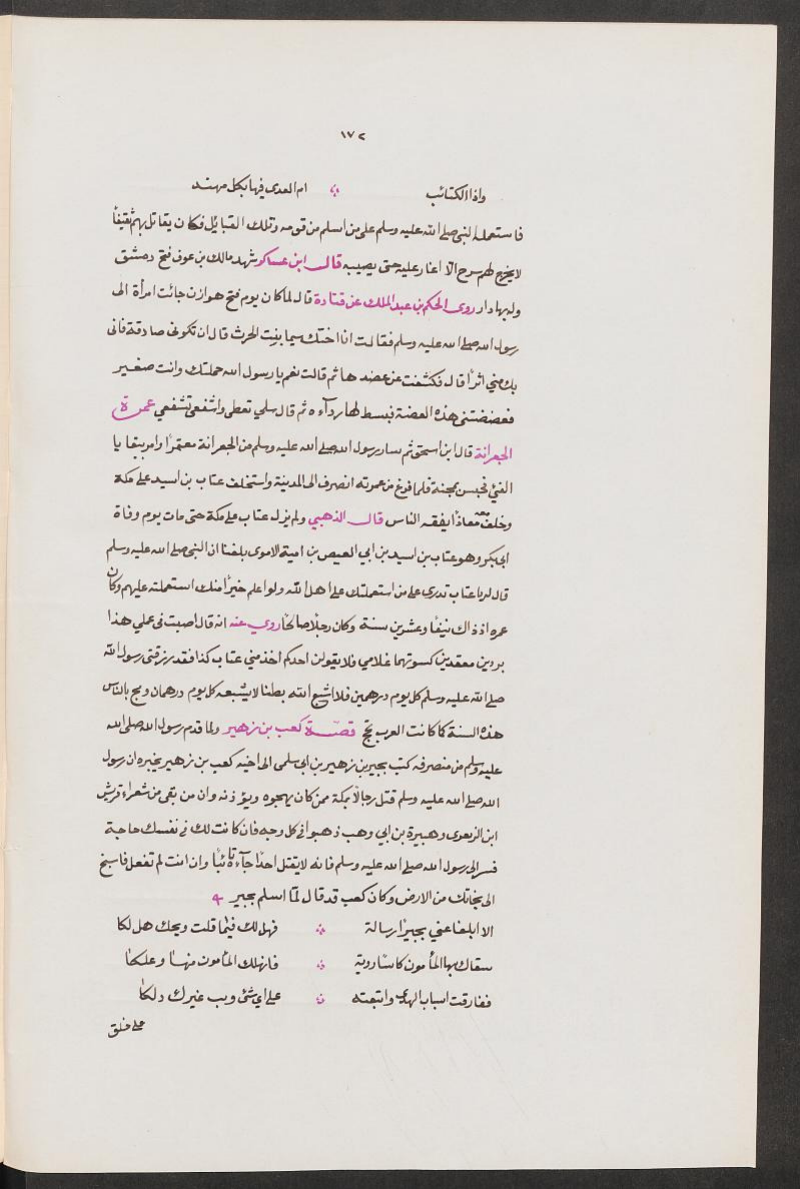 ١٧٢
واذا الكتائب ؞ ام العدى فيها بكل مهند
فاستعمله النبي صلى الله عليه وسلم على من اسلم من قومه وتلك القبائل فكان يقاتل بهم ثقيفاً
لا يخرج لهم سرح الا اغار عليه حتى يصيبه قال ابن عساكر شهد مالك بن عوف فتح دمشق
وله بها دار روى الحكم بن عبد الملك عن قتادة قال لما كان يوم فتح هوازن جائت امرأة الى
رسول الله صلى الله عليه وسلم فقالت انا اختك سيما بنت الحرث قال ان تكونى صادقة فانى
بك منى اثراً قال فكشفت عن عضدها ثم قالت نعم يا رسول الله حملتك وانت صغير
فعضضتنى هذه العضة فبسط لها ردآءه ثم قال سلى تعطى واشفعى تشفعى عمرة
الجعرانة قال ابن اسحق ثم سار رسول الله صلى الله عليه وسلم من الجعرانة معتمراً وامر ببقايا
الفئ فحبس بمجنة فلما فرغ من عمرته انصرف الى المدينة واستخلف عتاب بن اسيد على مكة
وخلف معه معاذاً يفقه الناس قال الذهبي ولم يزل عتاب على مكة حتى مات يوم وفاة
ابى بكر وهو عتاب بن اسيد بن ابي العيص بن امية الاموى بلغنا ان النبى صلى الله عليه وسلم
قال له يا عتاب تدرى على من استعملتك على اهل الله ولو اعلم خيراً منك استعملته عليهم وكان
عمره اذ ذاك نيفاً وعشرين سنة وكان رجلاً صالحاً روي عنه انه قال اصبت فى عملي هذا
بردين معقدين كسوتهما غلامي فلا يقولن احدكم اخذ مني عتاب كذا فقد رزقنى رسول الله
صلى الله عليه وسلم كل يوم درهمين فلا اشبع الله بطنا لا يشبعه كل يوم درهمان وحج بالناس
هذه السنة كما كانت العرب تحج قصة كعب بن زهير ولما قدم رسول الله صلى الله
عليه وسلم من منصرفه كتب بجير بن زهير بن ابى سلمى الى اخيه كعب بن زهير يخبره ان رسول
الله صلى الله عليه وسلم قتل رجالاً بمكة ممن كان يهجوه ويؤذنه وان من بقى من شعراء قريش
ابن الزبعرى وهبيرة بن ابي وهب ذهبوا فى كل وجه فان كانت لك فى نفسك حاجة
فسر الى رسول الله صلى الله عليه وسلم فانه لا يقتل احداً جآءه تائباً وان انت لم تفعل فاسنح
الى نجاتك من الارض وكان كعب قد قال لما اسلم بجير
الا ابلغا عني بجيراً رسالة ؞ فهل لك فيما قلت ويحك هل لكا
سقاك بها المأمون كاسا روية ؞ فانهلك المأمون منها وعلكا
ففارقت اسباب الهدى واتبعته ؞ على اي شئ ويب غيرك دلكا
على خلق